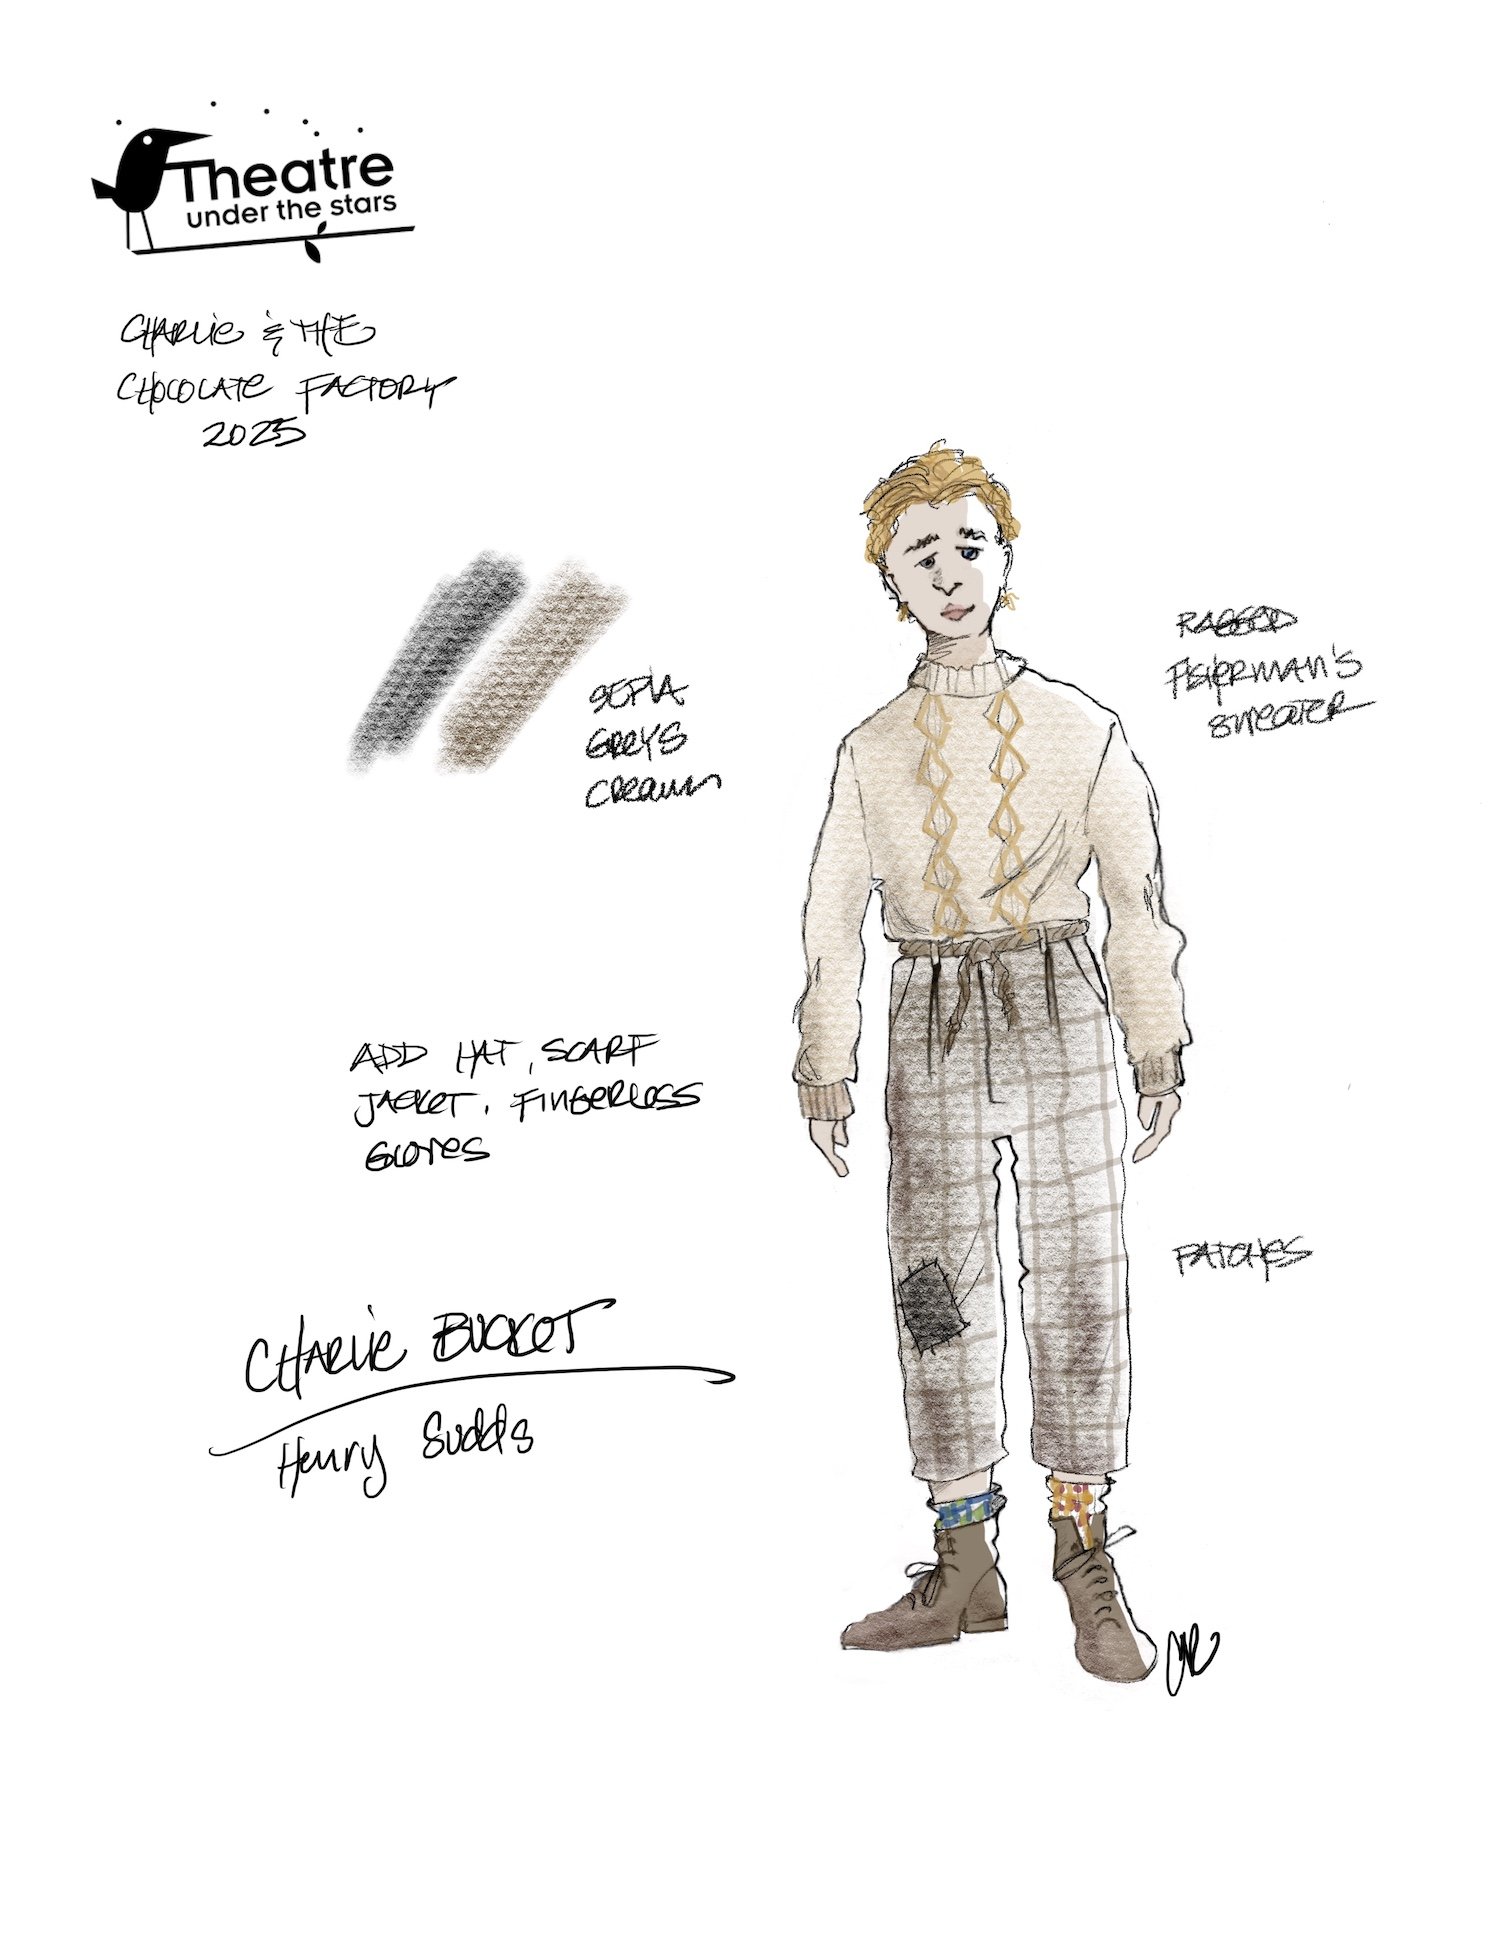 Theatre
under the stars
CHARLIE & THE
CHOCOLATE FACTORY
2025
RAGGED
FISHERMAN'S
SWEATER
SEPIA
GREYS
CREAM
ADD HAT, SCARF
JACKET, FINGERLESS
GLOVES
PATCHES
CHARLIE BUCKET
Henry Sudds